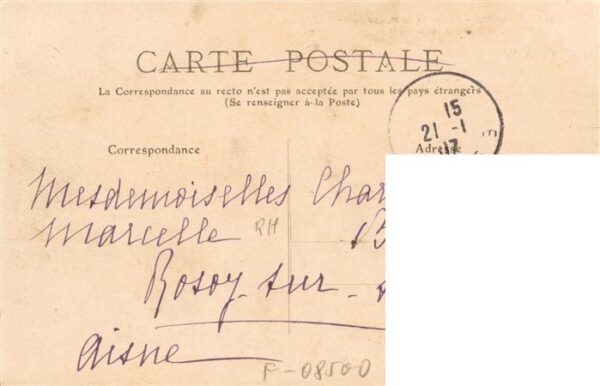 CARTE POSTALE
La Correspondance au recto n'est pas acceptée par tous les pays étrangers
(Se renseigner à la Poste)
15
21 -1
17
Correspondance
Adresse
Mesdemoiselles Char
Marcelle
RH
B
Rosoy-sur-
Aisne
F-08500